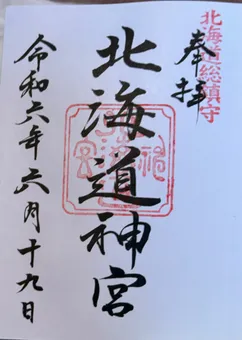 北海道総鎮守
奉拝
北海道神宮
令和六年六月十九日